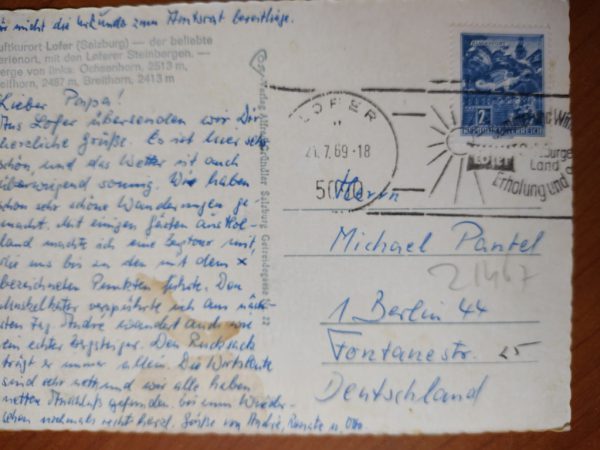 nicht die Urkunde zum Amtsrat
uftkurort Lofer (Salzburg) — der beliebte
erienort, mit den Loferer Steinbergen. —
erge von links: Ochsenhorn, 2513 m,
eithorn, 2457 m, Breithorn, 2413 m
Lieber Papa!
Aus Lofer übersenden wir Dir
herzliche Grüße. Es ist hier sehr
schön, und das Wetter ist auch
überwiegend sonnig. Wir haben
schon sehr schöne Wanderungen ge
macht. Mit einigen Gästen aus Hol-
land machte ich eine Bergtour mit
die uns bis zu den mit dem x
bezeichneten Punkten führte. Den
Muskelkater verspürte ich am näch-
sten Tag. André wandert auch wie
ein echter Bergsteiger. Den Rucksack
trägt er immer allein. Die Wirtsleute
sind sehr nett und wir alle haben
netten Anschluß gefunden. Grüße von André, Renate u.
Verlag Salzburg
LOFER
21.7.69-18
5090
2
REPUBLIK ÖSTERREICH
LOFER
Land
Erholung und
Herrn
Michael Pantel
21467
1 Berlin 44
Fontanestr. 25
Deutschland